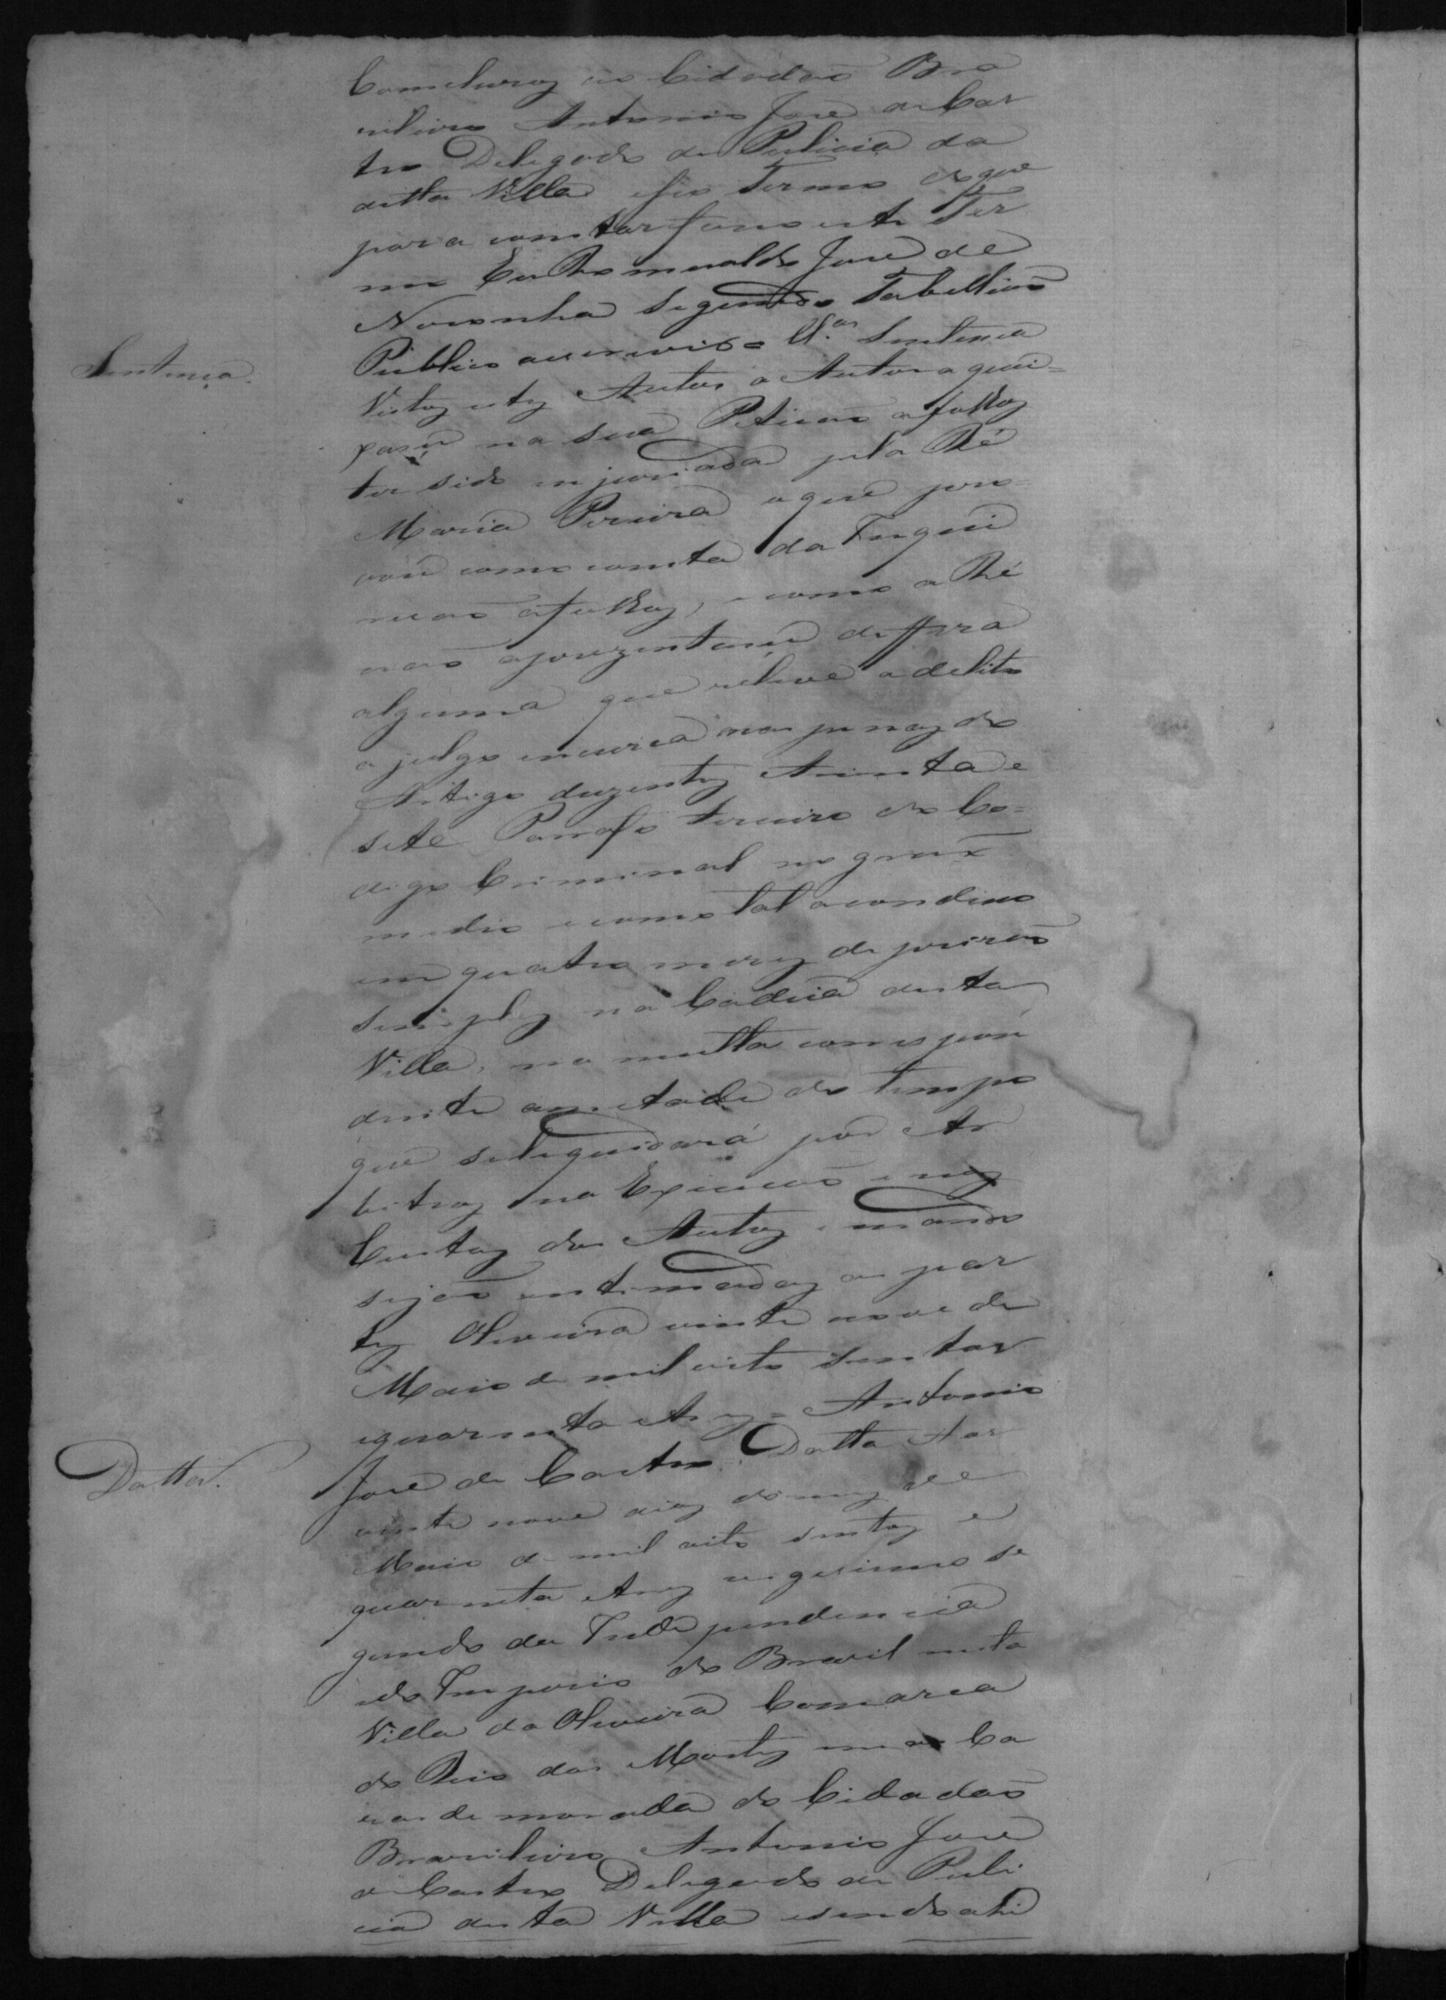 Comcluroz ao Cidadão Bra
zileiro Antonio Jose de Cas
tro Delegado da Policia da
ditta Villa e fis termo do que
para constar faço este Ter
mo Eu Romualdo Jose de
Noronha Segundo Tabellião
Publico que escrevi = Cl.ºs Sentença
Sentença.
Vistoz estez Autos a Autora quei=
xasse na sua Petição a folhaz
ter sido injuriada pela Ré
Maria Pereira o que pro=
vou como consta da Inqui
rição a folhaz, e como a Ré
não aprezentasse deffeza
alguma que releve o delito
a julgo incursa nas penaz do
Artigo duzentoz trinta e
sete Parrafo terceiro do Co=
digo Criminal no grau
medio e como tal a condeno
em quatro mezez de prizão
simplez na Cadeia desta
Villa, na multa correspon
dente a metade do tempo
que se liquidará por Ar
bitroz na Execução e naz
Custaz dos Autoz e mando
sejão intimadaz as par
tez Oliveira vinte nove de
Maio de mil oito sentos e
quarenta Anoz = Antonio
Jose de Castro. Datta Aos
Datta.
vinte nove diaz do mez de
Maio de mil oito sentoz e
quarenta Anoz vigesimo se
gundo da Independencia e
do Imperio do Brazil nesta
Villa da Oliveira Comarca
do Rio das Mortez em as Ca
zas de morada do Cidadão
Brazileiro Antonio Jose
de Castro Delegado da Poli
cia desta Villa e sendo ahi